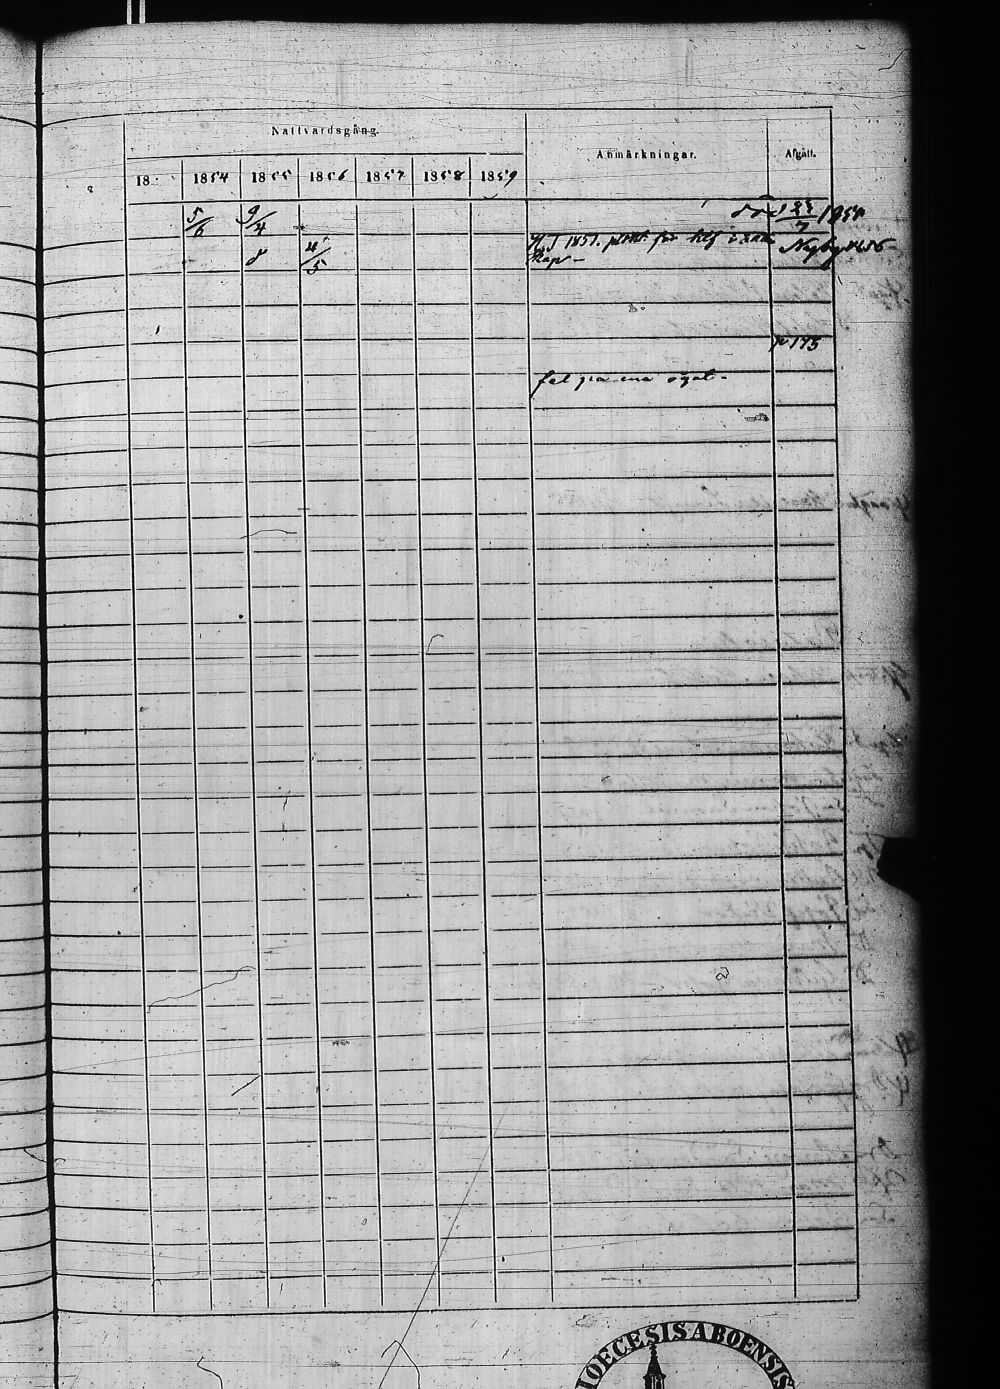 Nattvardsgång.
Anmärkningar.
Afgått.
18 1854 1855 1856 1857 1858 1859
5/6 9/4
8 4/5
H.T. 1851.
Nagby 1856
p 175
fel på ena ögat.
DIOECESIS ABOENSIS